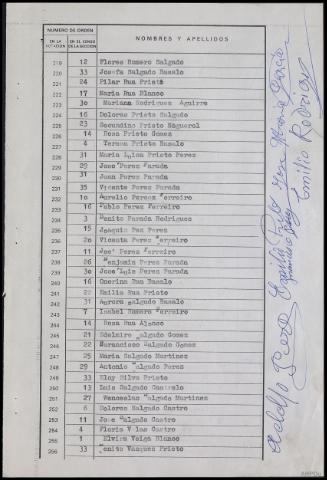 NUMERO DE ORDEN
NOMBRES Y APELLIDOS
EN LA VOTACION
EN EL CENSO DE LA SECCION
219 12 Flores Romero Salgado
220 33 Josefa Salgado Basalo
221 24 Pilar Rua Prieto
222 17 Maria Rua Blanco
223 30 Mariana Rodriguez Aguirre
224 16 Dolores Prieto Salgado
225 23 Secundino Prieto Noguerol
226 14 Rosa Prieto Gomez
227 4 Teresa Prieto Basalo
228 31 Maria Luisa Prieto Perez
229 29 Jose Perez Parada
230 31 Juan Perez Parada
231 35 Vicente Perez Parada
232 10 Aurelio Perez Ferreiro
233 16 Pablo Perez Ferreiro
234 3 Benito Parada Rodriguez
235 15 Joaquin Paz Perez
236 20 Vicenta Perez Ferreiro
237 11 Jose Perez Ferreiro
238 26 Benjamin Perez Parada
239 30 Jose Luis Perez Parada
240 16 Onerina Rua Basalo
241 22 Emilia Rua Prieto
242 31 Aurora Salgado Basalo
243 7 Isabel Romero Ferreiro
244 14 Rosa Rua Alonso
245 21 Edelmiro Salgado Gomez
246 22 Venancioo Salgado Gomez
247 25 Maria Salgado Martinez
248 29 Antonio Salgado Perez
249 33 Eloy Silva Prieto
250 13 Luis Salgado Castrelo
251 27 Wenceslao Salgado Martinez
252 6 Dolores Salgado Castro
253 11 Jose Salgado Castro
254 4 Floria Vilas Castro
255 1 Elvira Veiga Blanco
256 33 Benito Vazquez Prieto
Adolfo
Emilio Rodriguez